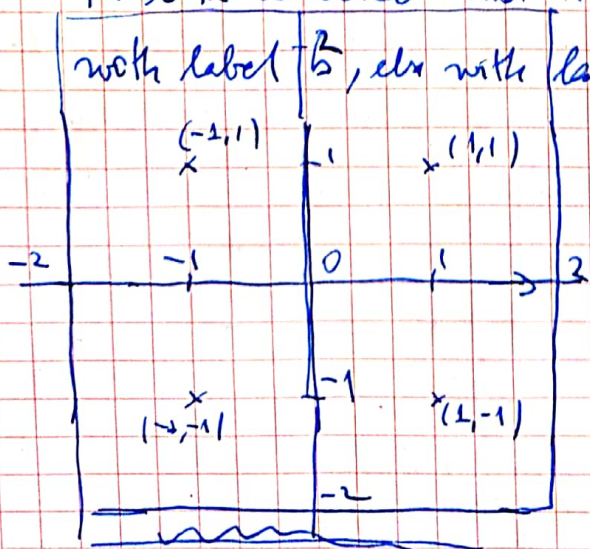 with label 5, else with la
(-1,1)
1
(1,1)
-2
-1
0
1
2
-1
(-1,-1)
(1,-1)
-2